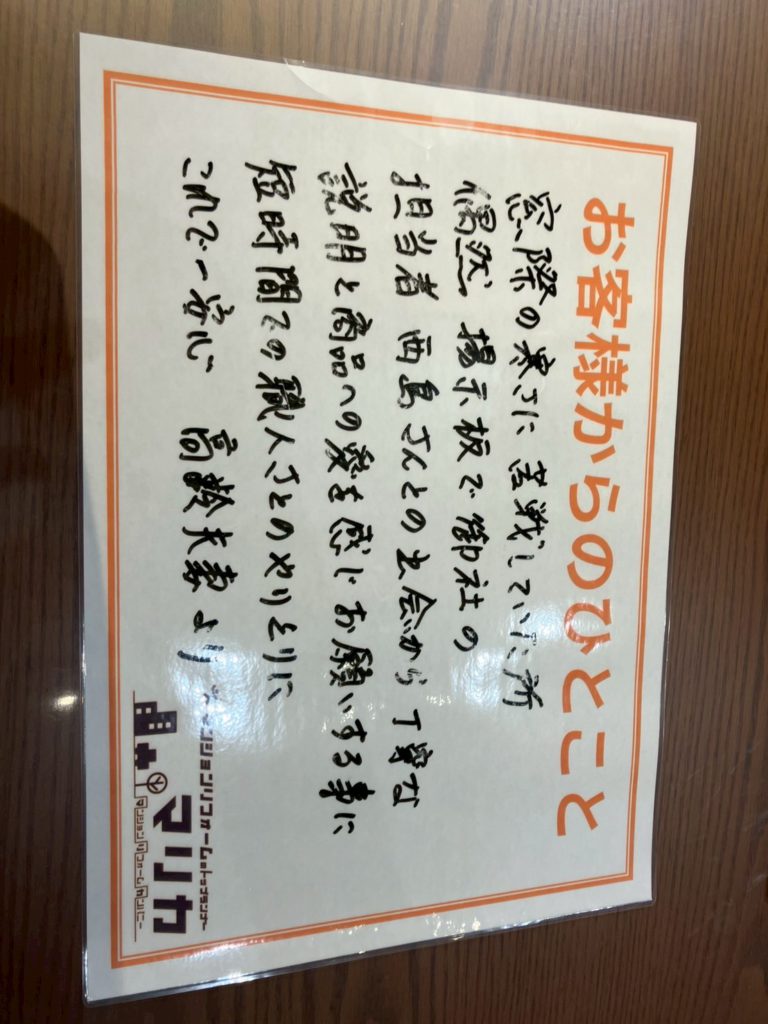 お客様からのひとこと
窓際の寒さに苦戦していた所
偶然 掲示板で御社の
担当者 西島さんとの出会から丁寧な
説明と商品への愛を感じお願いする事に
短時間での職人さとのやりとりに
これで一安心 高齢夫妻より
マンションリフォームのトップランナー
マリカ
マンションリフォームカンパニー